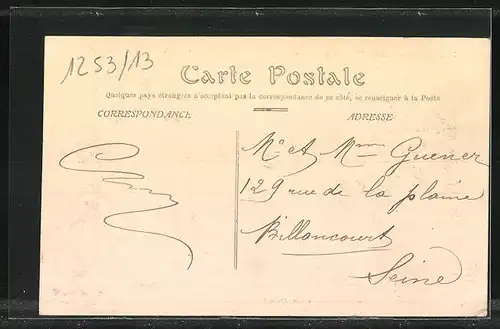 1253/13
Carte Postale
Quelques pays étrangers n'acceptent pas la correspondance de ce côté, se renseigner à la Poste
CORRESPONDANCE
ADRESSE
Mr et Mme Guener
129 rue de la plaine
Billancourt
Seine